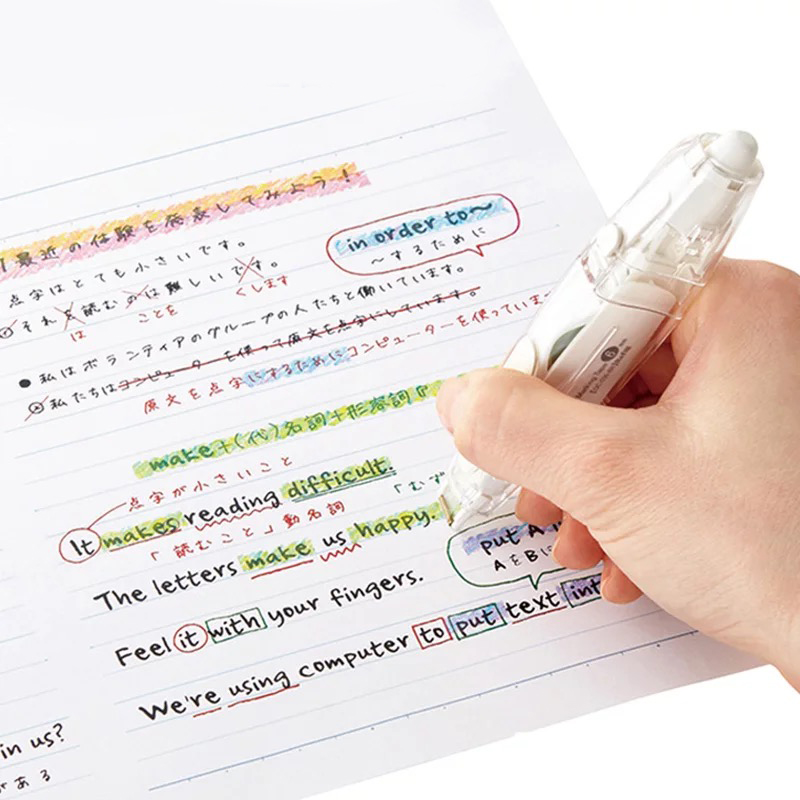 最近の体験を発表してみよう!
点字はとても小さいです。
それを読むのは難しいです。
は ことを くします
in order to〜
〜するために
● 私はボランティアのグループの人たちと働いています。
私たちはコンピューターを使って原文を点字にしています。
原文を点字にするためにコンピューターを使っていま
make+(代)名詞+形容詞『
点字が小さいこと
It makes reading difficult.
「読むこと」動名詞
「むず
The letters make us happy.
put A i
AをBに
Feel it with your fingers.
We're using computer to put text int
in us?
がある